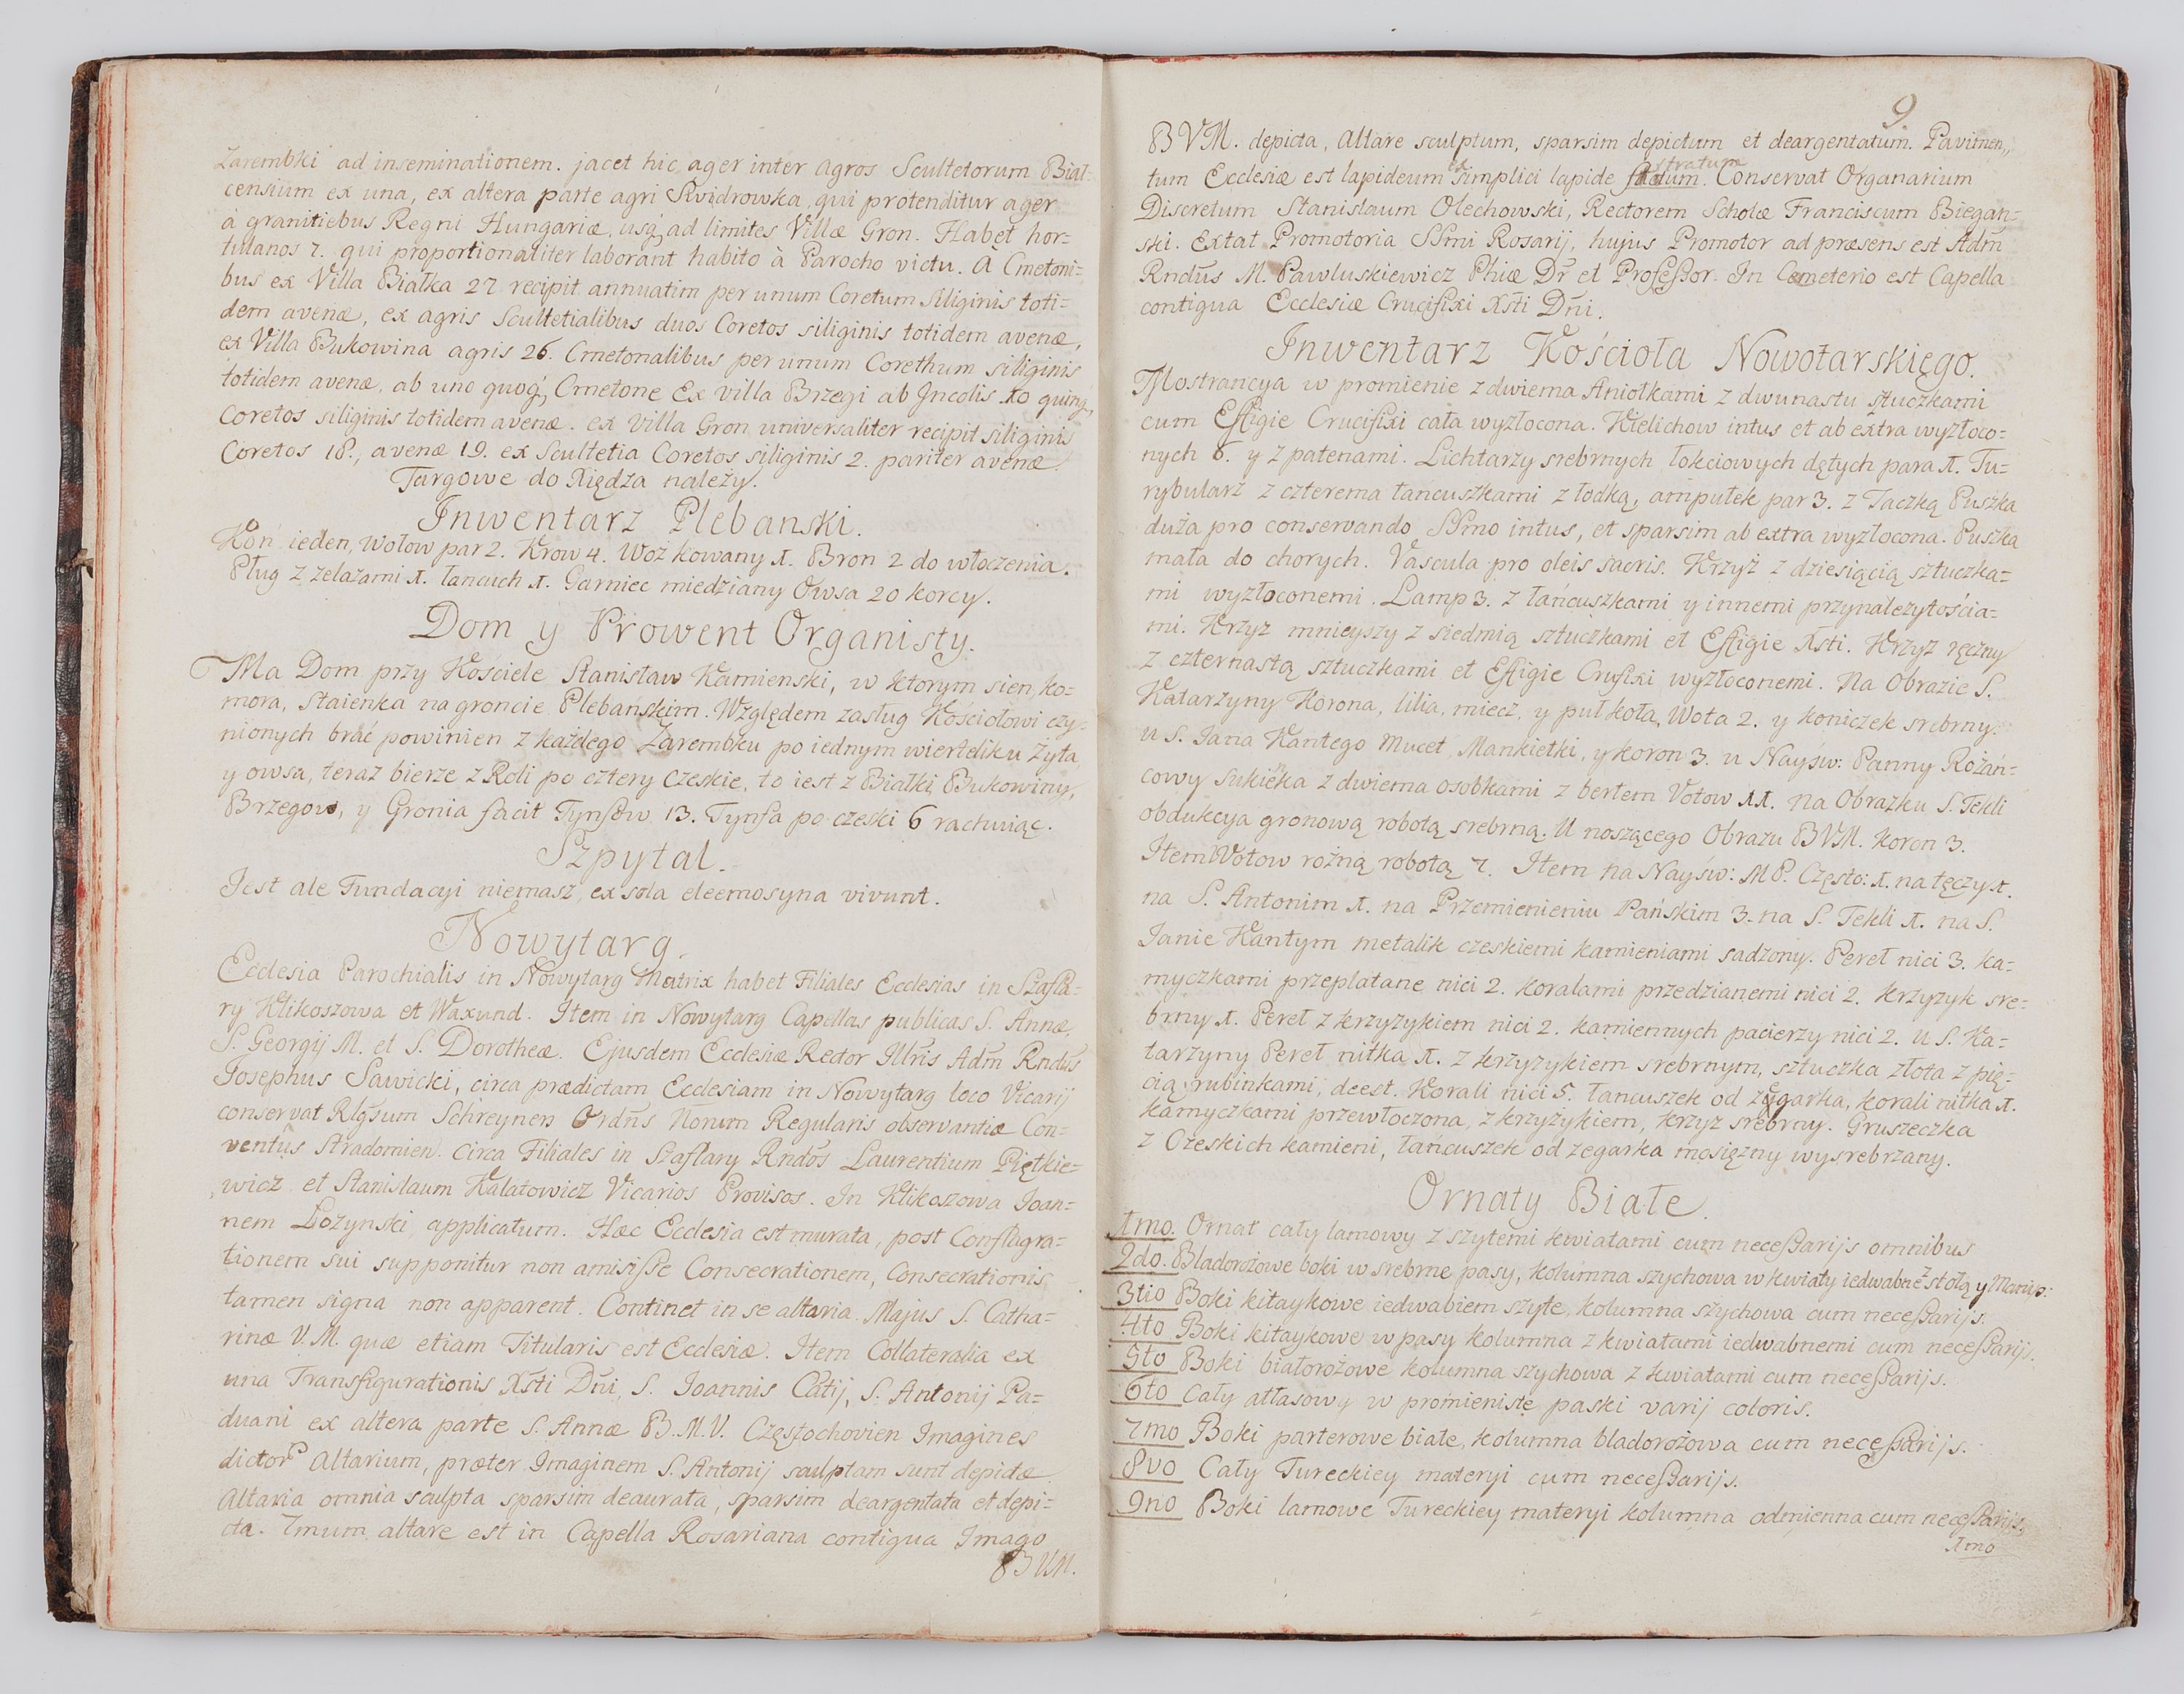 Zarembki ad inseminationem. jacet hic ager inter agros Scultetorum Biał-
censium ex una, ex altera parte agri Swidrowka, qui protenditur ager
à granitiebus Regni Hungariæ, usq; ad limites Villæ Gron. Habet hor=
tulanos 7. qui proportionaliter laborant habito à Parocho victu. A Cmetoni=
bus ex Villa Białka 27 recipit annuatim per unum Coretum siliginis toti=
dem avenæ, ex agris Scultetialibus duos Coretos siliginis totidem avenæ,
ex Villa Bukowina agris 26. Cmetonalibus per unum Corethum siliginis
totidem avenæ, ab uno quoq; Cmetone Ex villa Brzegi ab Incolis 10 quinq;
Coretos siliginis totidem avenæ. ex Villa Gron universaliter recipit siliginis
Coretos 18., avenæ 19. ex Scultetia Coretos siliginis 2. pariter avenæ.
Targowe do Xiędza należy.
Inwentarz Plebanski.
Koń ieden, Wołow par 2. Krow 4. Woz kowany 1. Bron 2 do włoczenia.
Pług z żelazami 1. łancuch 1. Garniec miedziany Owsa 20 korcy.
Dom y Prowent Organisty.
Ma Dom przy Kościele Stanisław Kamienski, w ktorym sien, ko=
mora, Staienka na groncie Plebańskim. Względem zasług Kościołowi czy=
nionych brać powinien z każdego Zarembku po iednym wierteliku Żyta,
y owsa, teraz bierze z Roli po cztery Czeskie, to iest z Białki, Bukowiny,
Brzegow, y Gronia facit Tynfow 13. Tynfa po czeski 6 rachuiąc.
Szpytal.
Jest ale Fundacyi niemasz, ex sola eleemosyna vivunt.
Nowytarg.
Ecclesia Parochialis in Nowytarg Matrix habet Filiales Ecclesias in Szafla=
ry Klikoszowa et Waxund. Item in Nowytarg Capellas publicas S. Annæ,
S. Georgij M. et S. Dorotheæ. Ejusdem Ecclesiæ Rector Illris Adm Rndus
Josephus Sawicki, circa prædictam Ecclesiam in Nowytarg loco Vicarij
conservat Rlgsum Schreynen Ordns Norum Regularis observantiæ Con=
ventûs Stradomien. Circa Filiales in Szaflary Rndos Laurentium Piętkie=
wicz et Stanislaum Kalatowicz Vicarios Provisos. In Klikoszowa Joan=
nem Łozynski applicatum. Hæc Ecclesia est murata, post Conflagra=
tionem sui supponitur non amisisse Consecrationem, Consecrationis
tamen signa non apparent. Continet in se altaria Majus S. Catha=
rinæ V. M. quæ etiam Titularis est Ecclesiæ. Item Collateralia ex
una Transfigurationis Xsti Dni, S. Joannis Catij, S. Antonij Pa=
duani ex altera parte S. Annæ B.M.V. Częstochovien Imagines
dictor Altarium, præter Imaginem S. Antonij sculptam sunt depictæ.
Altaria omnia sculpta sparsim deaurata, sparsim deargentata et depi=
cta. 7mum altare est in Capella Rosariana contigua Imago
BVM.
9
BVM. depicta, Altare sculptum, sparsim depictum et deargentatum. Pavimen,,
tum Ecclesiæ est lapideum ex simplici lapide stratum. Conservat Organarium
Discretum Stanislaum Olechowski, Rectorem Scholæ Franciscum Biegan=
ski. Extat Promotoria SSmi Rosarij, hujus Promotor ad præsens est Adm
Rndus M. Pawluskiewicz Phiæ Dr et Professor. In Cæmeterio est Capella
contigua Ecclesiæ Crucifixi Xsti Dni.
Inwentarz Kościoła Nowotarskięgo.
Mostrancya w promienie z dwiema Aniołkami z dwunastu sztuczkami
cum Effigie Crucifixi cała wyzłocona. Kielichow intus et ab extra wyzłoco=
nych 6. y z patenami. Lichtarzy srebrnych łokciowych dętych para 1. Tu=
rybularz z czterema łancuszkami z łodką, ampułek par 3. z Taczką Puszka
duża pro conservando SSmo intus, et sparsim ab extra wyzłocona. Puszka
mała do chorych. Vascula pro oleis sacris. Krzyż z dziesiącią sztuczka=
mi wyzłoconemi. Lamp 3. z łańcuszkami y innemi przynależytościa=
mi. Krzyz mnieyszy z siedmią sztuczkami et Effigie Xsti. Krzyż ręczny
z czternastą sztuczkami et Effigie Crufixi wyzłoconemi. Na Obrazie S.
Katarzyny Korona, lilia, miecz, y puł koła, Wota 2. y koniczek srebrny.
u S. Jana Kantego Mucet, Mankietki, y koron 3. u Nayśw: Panny Różań=
cowy Sukieńka z dwiema osobkami z bertem Votow 11. Na Obrazku S. Tekli
obdukcya gronową robotą srebrną. U noszącego Obrazu BVM. koron 3.
Item Votow rożną robotą 7. Item na Nayśw: M P. Często: 1. na tęczy 1.
na S. Antonim 1. na Przemienieniu Pańskim 3. na S. Tekli 1. na S.
Janie Kantym metalik czeskiemi kamieniami sadzony. Pereł nici 3. ka=
myczkami przeplatane nici 2. koralami przedzianemi nici 2. krzyzyk sre=
brny 1. Pereł z krzyzykiem nici 2. kamiennych pacierzy nici 2. U S. Ka=
tarzyny Pereł nitka 1. z krzyzykiem srebrnym, sztuczka złota z pię=
cią rubinkami, deest. Korali nici 5. łancuszek od zygarka, korali nitka 1.
kamyczkami przewłoczona, z krzyżykiem, krzyz srebrny. Gruszeczka
z Czeskich kamieni, łańcuszek od zegarka mosięzny wysrebrzany.
Ornaty Białe.
1mo. Ornat cały lamowy z szytemi kwiatami cum necessarijs omnibus
2do. Bladorożowe boki w srebrne pasy, kolumna szychowa w kwiaty iedwabne z stołą y Manip:
3tio Boki kitaykowe iedwabiem szyte, kolumna szychowa cum necessarijs.
4to Boki kitaykowe w pasy kolumna z kwiatami iedwabnemi cum necessarijs.
5to Boki białorożowe kolumna szychowa z kwiatami cum necessarijs.
6to Cały atłasowy w promieniste paski varij coloris.
7mo Boki parterowe białe, kolumna bladorożowa cum necessarijs.
8vo Cały Tureckiey materyi cum necessarijs.
9no Boki lamowe Tureckiey materyi kolumna odmienna cum necessarijs,
1mo